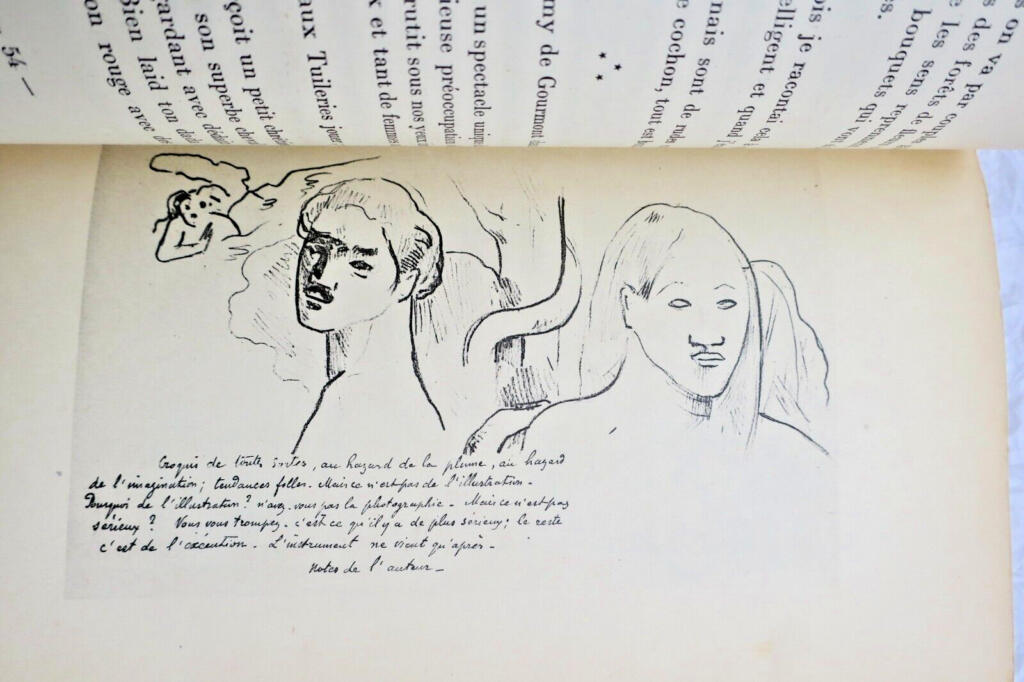 s on va par coupe
s des forêts de
e les sens reprennen
bouquets qui von
es.
* * *
ois je racontai cela
elligent et quand j'
nais sont de rudes
e cochon, tout en
my de Gourmont da
un spectacle unique
ieuse préoccupation
rutit sous nos yeux
x et tant de femmes
aux Tuileries jouer
çoit un petit chien
son superbe
gardant avec
Bien laid ton
on rouge avec
54 —
Croquis de toutes sortes, au hazard de la plume, au hazard
de l'imagination; tendances folles. Mais ce n'est pas de l'illustration -
Pourquoi de l'illustration? n'avez-vous pas la photographie - Mais ce n'est pas
sérieux? Vous vous trompez - c'est ce qu'il y a de plus sérieux; le reste
c'est de l'exécution - L'instrument ne vient qu'après -
Notes de l'auteur -